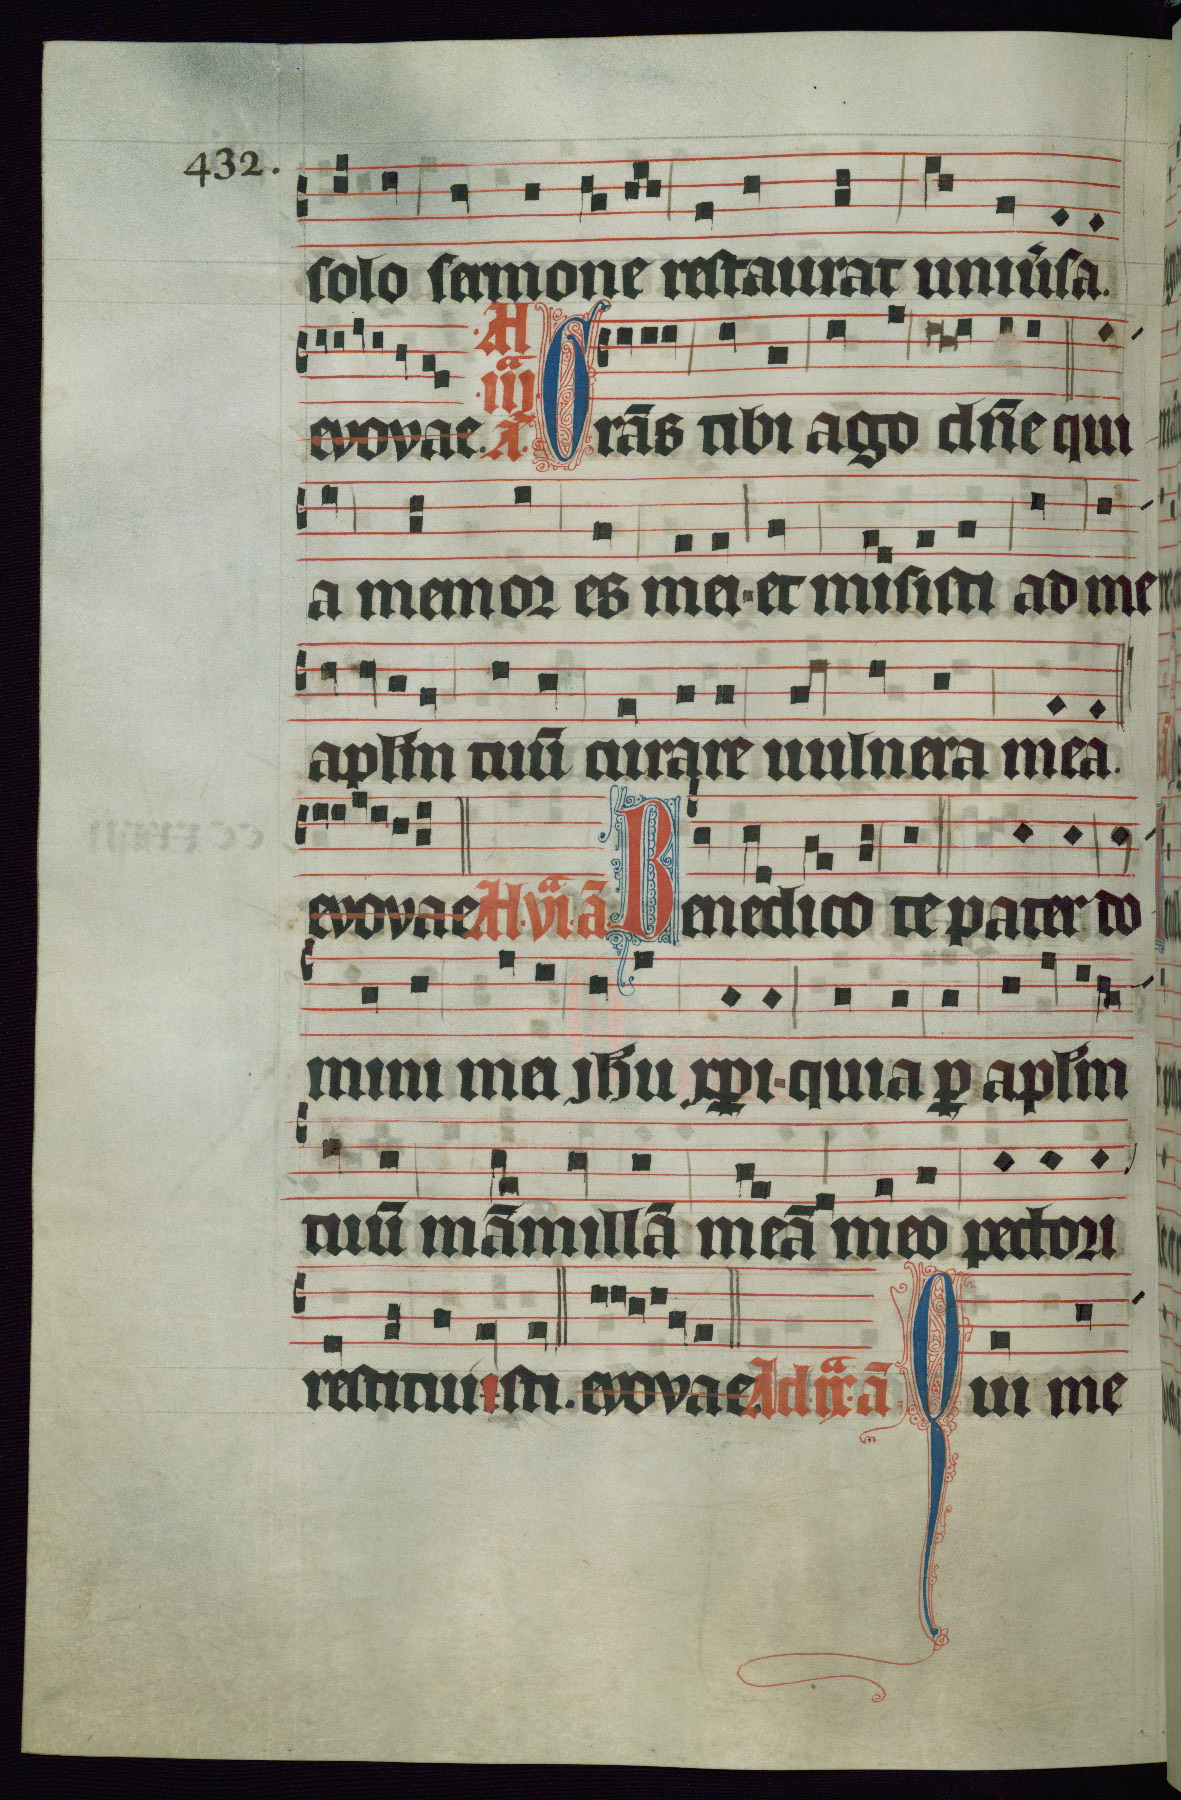 432.
solo sermone restaurat uniu̾sa.
evovae. Ad iii. a̅. Gra̅s tibi ago dn̅e qui
a memor es mei · et misisti ad me
apl̅m tuu̅ curare uulnera mea.
evovae Ad · vi · a̅. Benedico te pater do
mini mei jhu xp̅i · quia ꝑ apl̅m
tuu̅ ma̅milla̅ mea̅ meo pectori
restituisti. evovae Ad a̅ Qui me